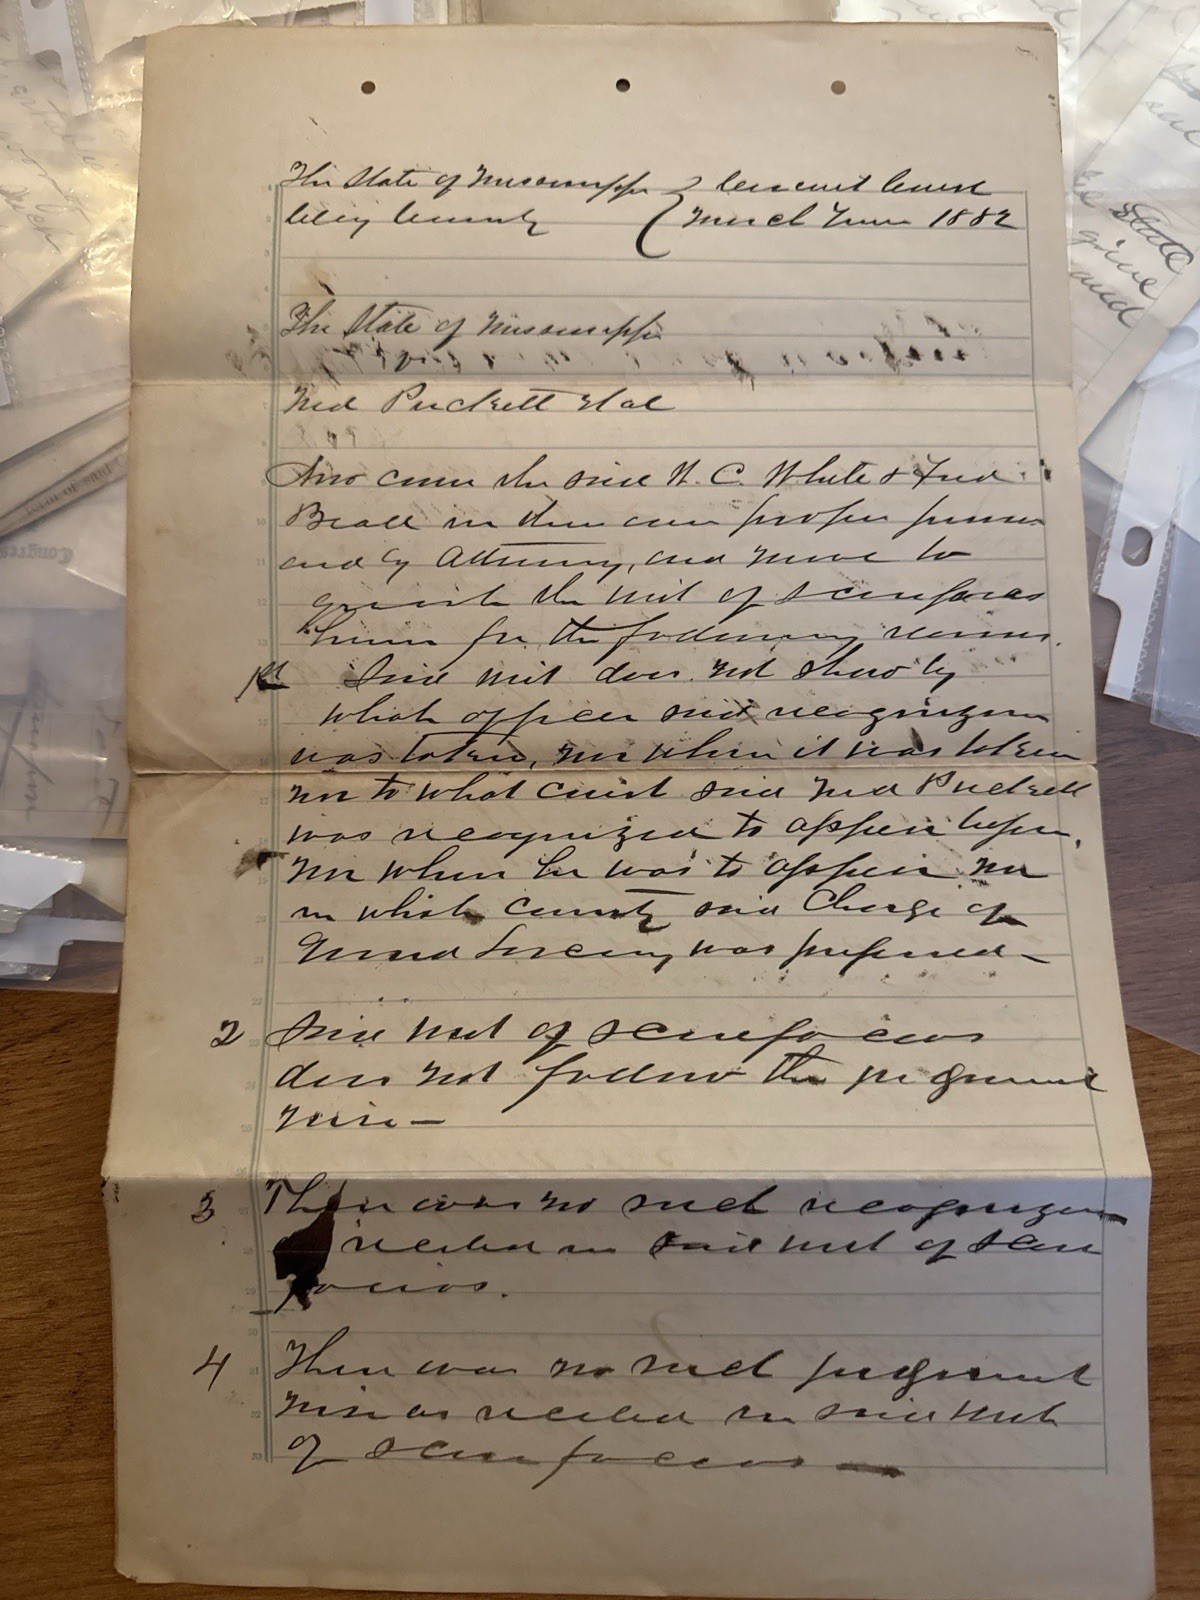 The State of Mississippi } Circuit Court
Clay County { March Term 1882
The State of Mississippi
Ned Puckett et al
Now come the said H. C. White & Fred
Beall in their own proper person
and by Attorney, and move to
quash the writ of scirefacias
herein for the following reasons.
1st Said writ does not show by
what officer said recognizance
was taken, nor when it was taken
nor to what court said Ned Puckett
was recognized to appear before,
nor when he was to appear nor
in which county said Charge of
Grand Larceny was preferred —
2 Said writ of scirefacias
does not follow the judgment
nisi —
3 There was no such recognizance
recited in said writ of scire
facias.
4 There was no such judgment
nisi as recited in said writ
of scire facias —
State
give
and